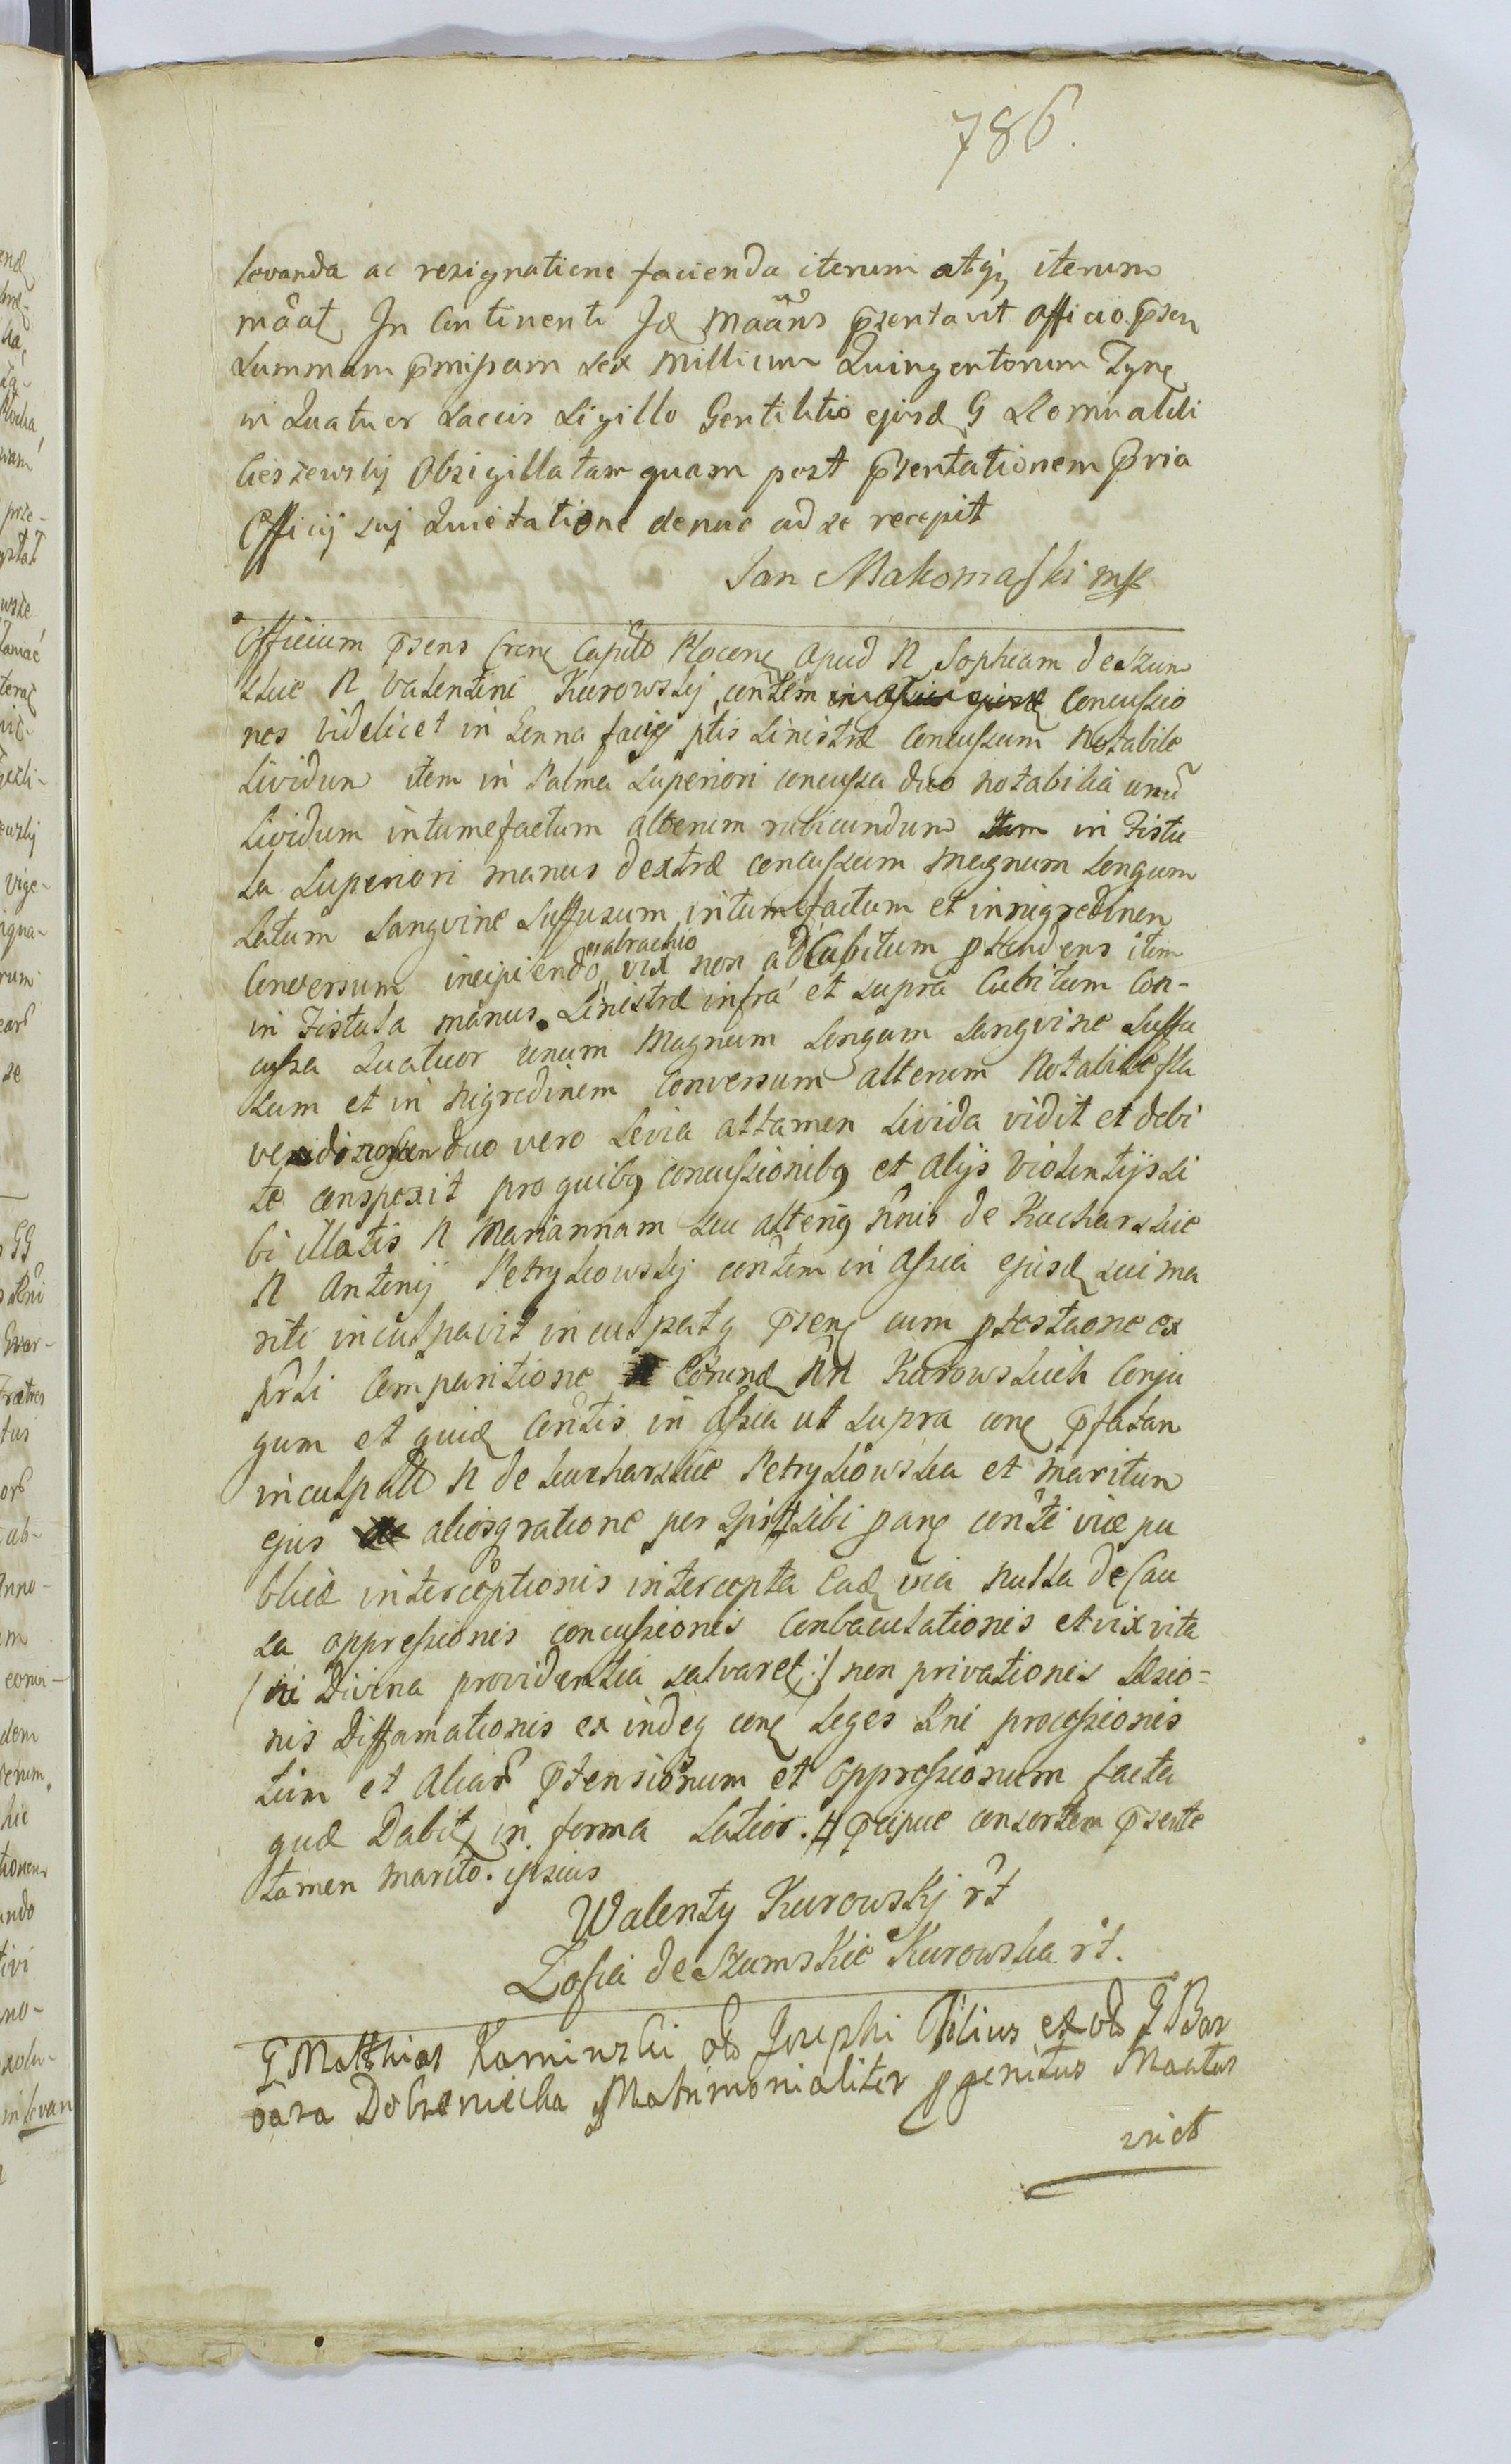 786.
levanda ac resignatione facienda iterum atq; iterum
mãat, In Continenti Id Maãns p̃sentavit officio p̃sen
Summam p̃missam sex millium Quingentorum Tynf
in Quatuor saccis Sigillo Gentilitio ejusd G Romualdi
Cieszewskij Obsigillatam quam post p̃sentationem p̃via
Officij sui Quietatione denuo ad se recepit
Jan Makomaski mp
Officium p̃sens Crens Capitñ Plocens apud N Sophiam de Szum
skie N Valentini Kurowskij conĩtem Concussio
nes videlicet in Genna faciej ptis Sinistræ Concussum Notabile
Lividum item in Palma Superiori concussa duo notabilia unũ
Lividum intumefactum alterum rubicundum Item in Fistu
la Superiori manus dextræ concussum Magnum Longum
Latum Sangvine Suffusum intumefactum et in nigredinem
Conversum incipiendo a brachio vix non ad Cubitum p̃tendens item
in Fistula manus Sinistræ infra et supra Cubitum Con-
cussa Quatuor unum Magnum Longum Sangvine Suffu
sum et in nigredinem Conversum alterum Notabile
duo vero Levia attamen Livida vidit et debi
te conspexit pro quibq concussionibq et alijs Violentijs si
bi illatis N Mariannam seu alteriq nõnis de Kucharskie
N Antonij Petrykowskij conĩtem in assia ejusd sui ma
riti inculpavit inculpatq p̃sens cum p̃testãone ex
p̃rti Comparitione Eorund NN Kurowskich Conju
gum et quid conĩtis in assia ut supra cone p̃fatan
inculpatt N de Kucharskie Petrykowska et maritum
ejus aliosq ratione per Ips # sibi pane conĩti viæ pu
blicæ interceptionis intercepta ead via nulla de Cau
sa oppressionis concussionis Conbaculationis et vix vita
(ni Divina providentia salvaret:/ non privationis Læsio-
nis Diffamationis ex indeq cone Leges Rni processionis
Lim et Aliar p̃tensionum et Oppressionum facta
quæ Dabit, in forma Latior. # p̃cipue consortem p̃sente
tamen marito ipsius
Walenty Kurowskj r̃t
Zofia de Szumskie Kurowska r̃t.
G Matthias Kaminski oĩ Josephi Filius ex oĩ G Bar
bara Dobrzeniecka Matrimonialiter p̃genitus Maatur
vict